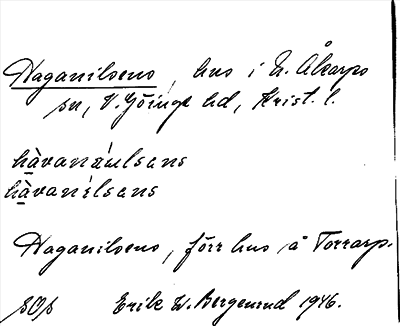 Haganilsens, hus i N. Åkarps
sn, V. Göinge hd, Krist. l.
hàvanílsens
Haganilsens, förr hus å Torrarp.
SOs Erik W. Bergenrud 1946.